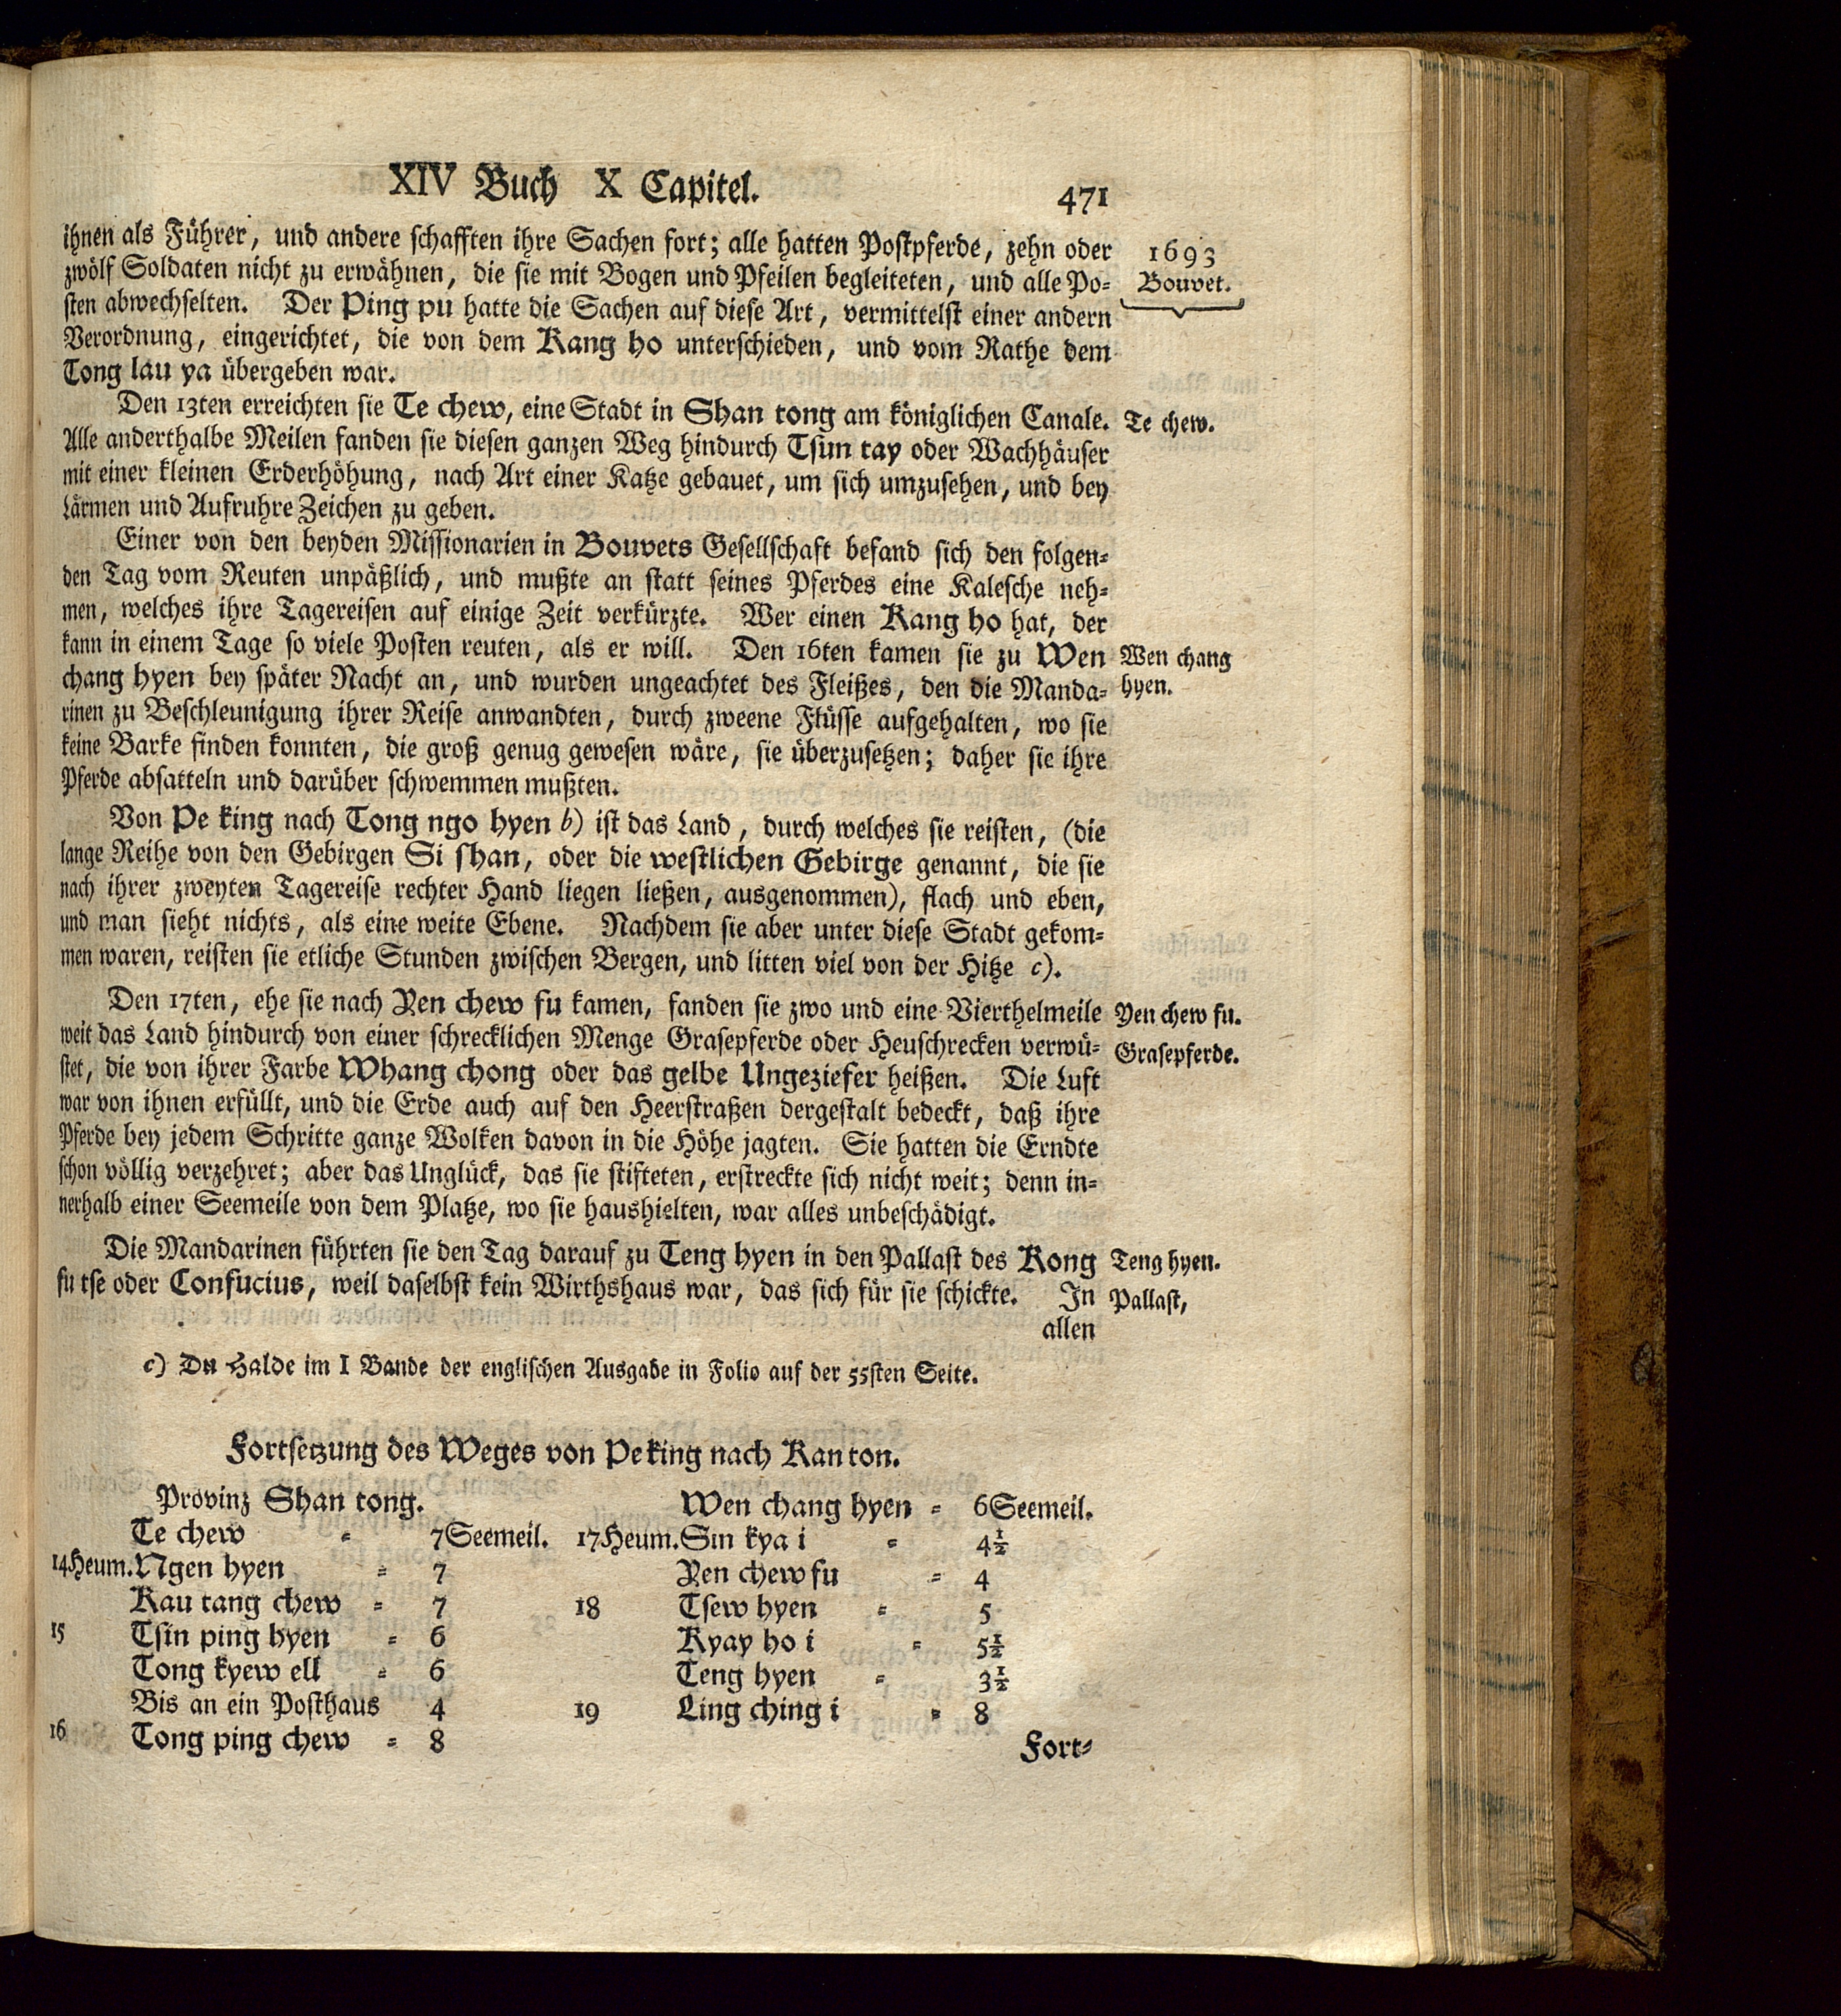 XIV Buch X Capitel. 471
ihnen als Führer, und andere schafften ihre Sachen fort; alle hatten Postpferde, zehn oder
zwölf Soldaten nicht zu erwähnen, die sie mit Bogen und Pfeilen begleiteten, und alle Po-
sten abwechselten. Der Ping pu hatte die Sachen auf diese Art, vermittelst einer andern
Verordnung, eingerichtet, die von dem Kang ho unterschieden, und vom Rathe dem
Tong lau ya übergeben war.
1693
Bouvet.
Den 13ten erreichten sie Te chew, eine Stadt in Shan tong am königlichen Canale.
Te chew.
Alle anderthalbe Meilen fanden sie diesen ganzen Weg hindurch Tsun tay oder Wachhäuser
mit einer kleinen Erderhöhung, nach Art einer Katze gebauet, um sich umzusehen, und bey
Lärmen und Aufruhre Zeichen zu geben.
Einer von den beyden Missionarien in Bouvets Gesellschaft befand sich den folgen-
den Tag vom Reuten unpäßlich, und mußte an statt seines Pferdes eine Kalesche neh-
men, welches ihre Tagereisen auf einige Zeit verkürzte. Wer einen Kang ho hat, der
kann in einem Tage so viele Posten reuten, als er will. Den 16ten kamen sie zu Wen
chang hyen bey später Nacht an, und wurden ungeachtet des Fleißes, den die Manda-
Wen chang
hyen.
rinen zu Beschleunigung ihrer Reise anwandten, durch zweene Flüsse aufgehalten, wo sie
keine Barke finden konnten, die groß genug gewesen wäre, sie überzusetzen; daher sie ihre
Pferde absatteln und darüber schwemmen mußten.
Von Pe king nach Tong ngo hyen b) ist das Land, durch welches sie reisten, (die
lange Reihe von den Gebirgen Si shan, oder die westlichen Gebirge genannt, die sie
nach ihrer zweyten Tagereise rechter Hand liegen ließen, ausgenommen), flach und eben,
und man sieht nichts, als eine weite Ebene. Nachdem sie aber unter diese Stadt gekom-
men waren, reisten sie etliche Stunden zwischen Bergen, und litten viel von der Hitze c).
Den 17ten, ehe sie nach Yen chew fu kamen, fanden sie zwo und eine Vierthelmeile
Yen chew fu.
weit das Land hindurch von einer schrecklichen Menge Grasepferde oder Heuschrecken verwü-
Grasepferde.
stet, die von ihrer Farbe Whang chong oder das gelbe Ungeziefer heißen. Die Luft
war von ihnen erfüllt, und die Erde auch auf den Heerstraßen dergestalt bedeckt, daß ihre
Pferde bey jedem Schritte ganze Wolken davon in die Höhe jagten. Sie hatten die Erndte
schon völlig verzehret; aber das Unglück, das sie stifteten, erstreckte sich nicht weit; denn in-
nerhalb einer Seemeile von dem Platze, wo sie haushielten, war alles unbeschädigt.
Die Mandarinen führten sie den Tag darauf zu Teng hyen in den Pallast des Kong
Teng hyen.
fu tse oder Confucius, weil daselbst kein Wirthshaus war, das sich für sie schickte. In
Pallast,
allen
c) Du Halde im I Bande der englischen Ausgabe in Folio auf der 55sten Seite.
Fortsetzung des Weges von Peking nach Kanton.
Provinz Shan tong.
Te chew - 7 Seemeil.
14 Heum. Ngen hyen - 7
Kau tang chew - 7
15 Tsin ping hyen - 6
Tong kyew ell - 6
Bis an ein Posthaus 4
16 Tong ping chew - 8
Wen chang hyen - 6 Seemeil.
17 Heum. Sin kya i - 4½
Yen chew fu - 4
18 Tsew hyen - 5
Kyay ho i - 5½
Teng hyen - 3½
19 Ling ching i - 8
Fort-